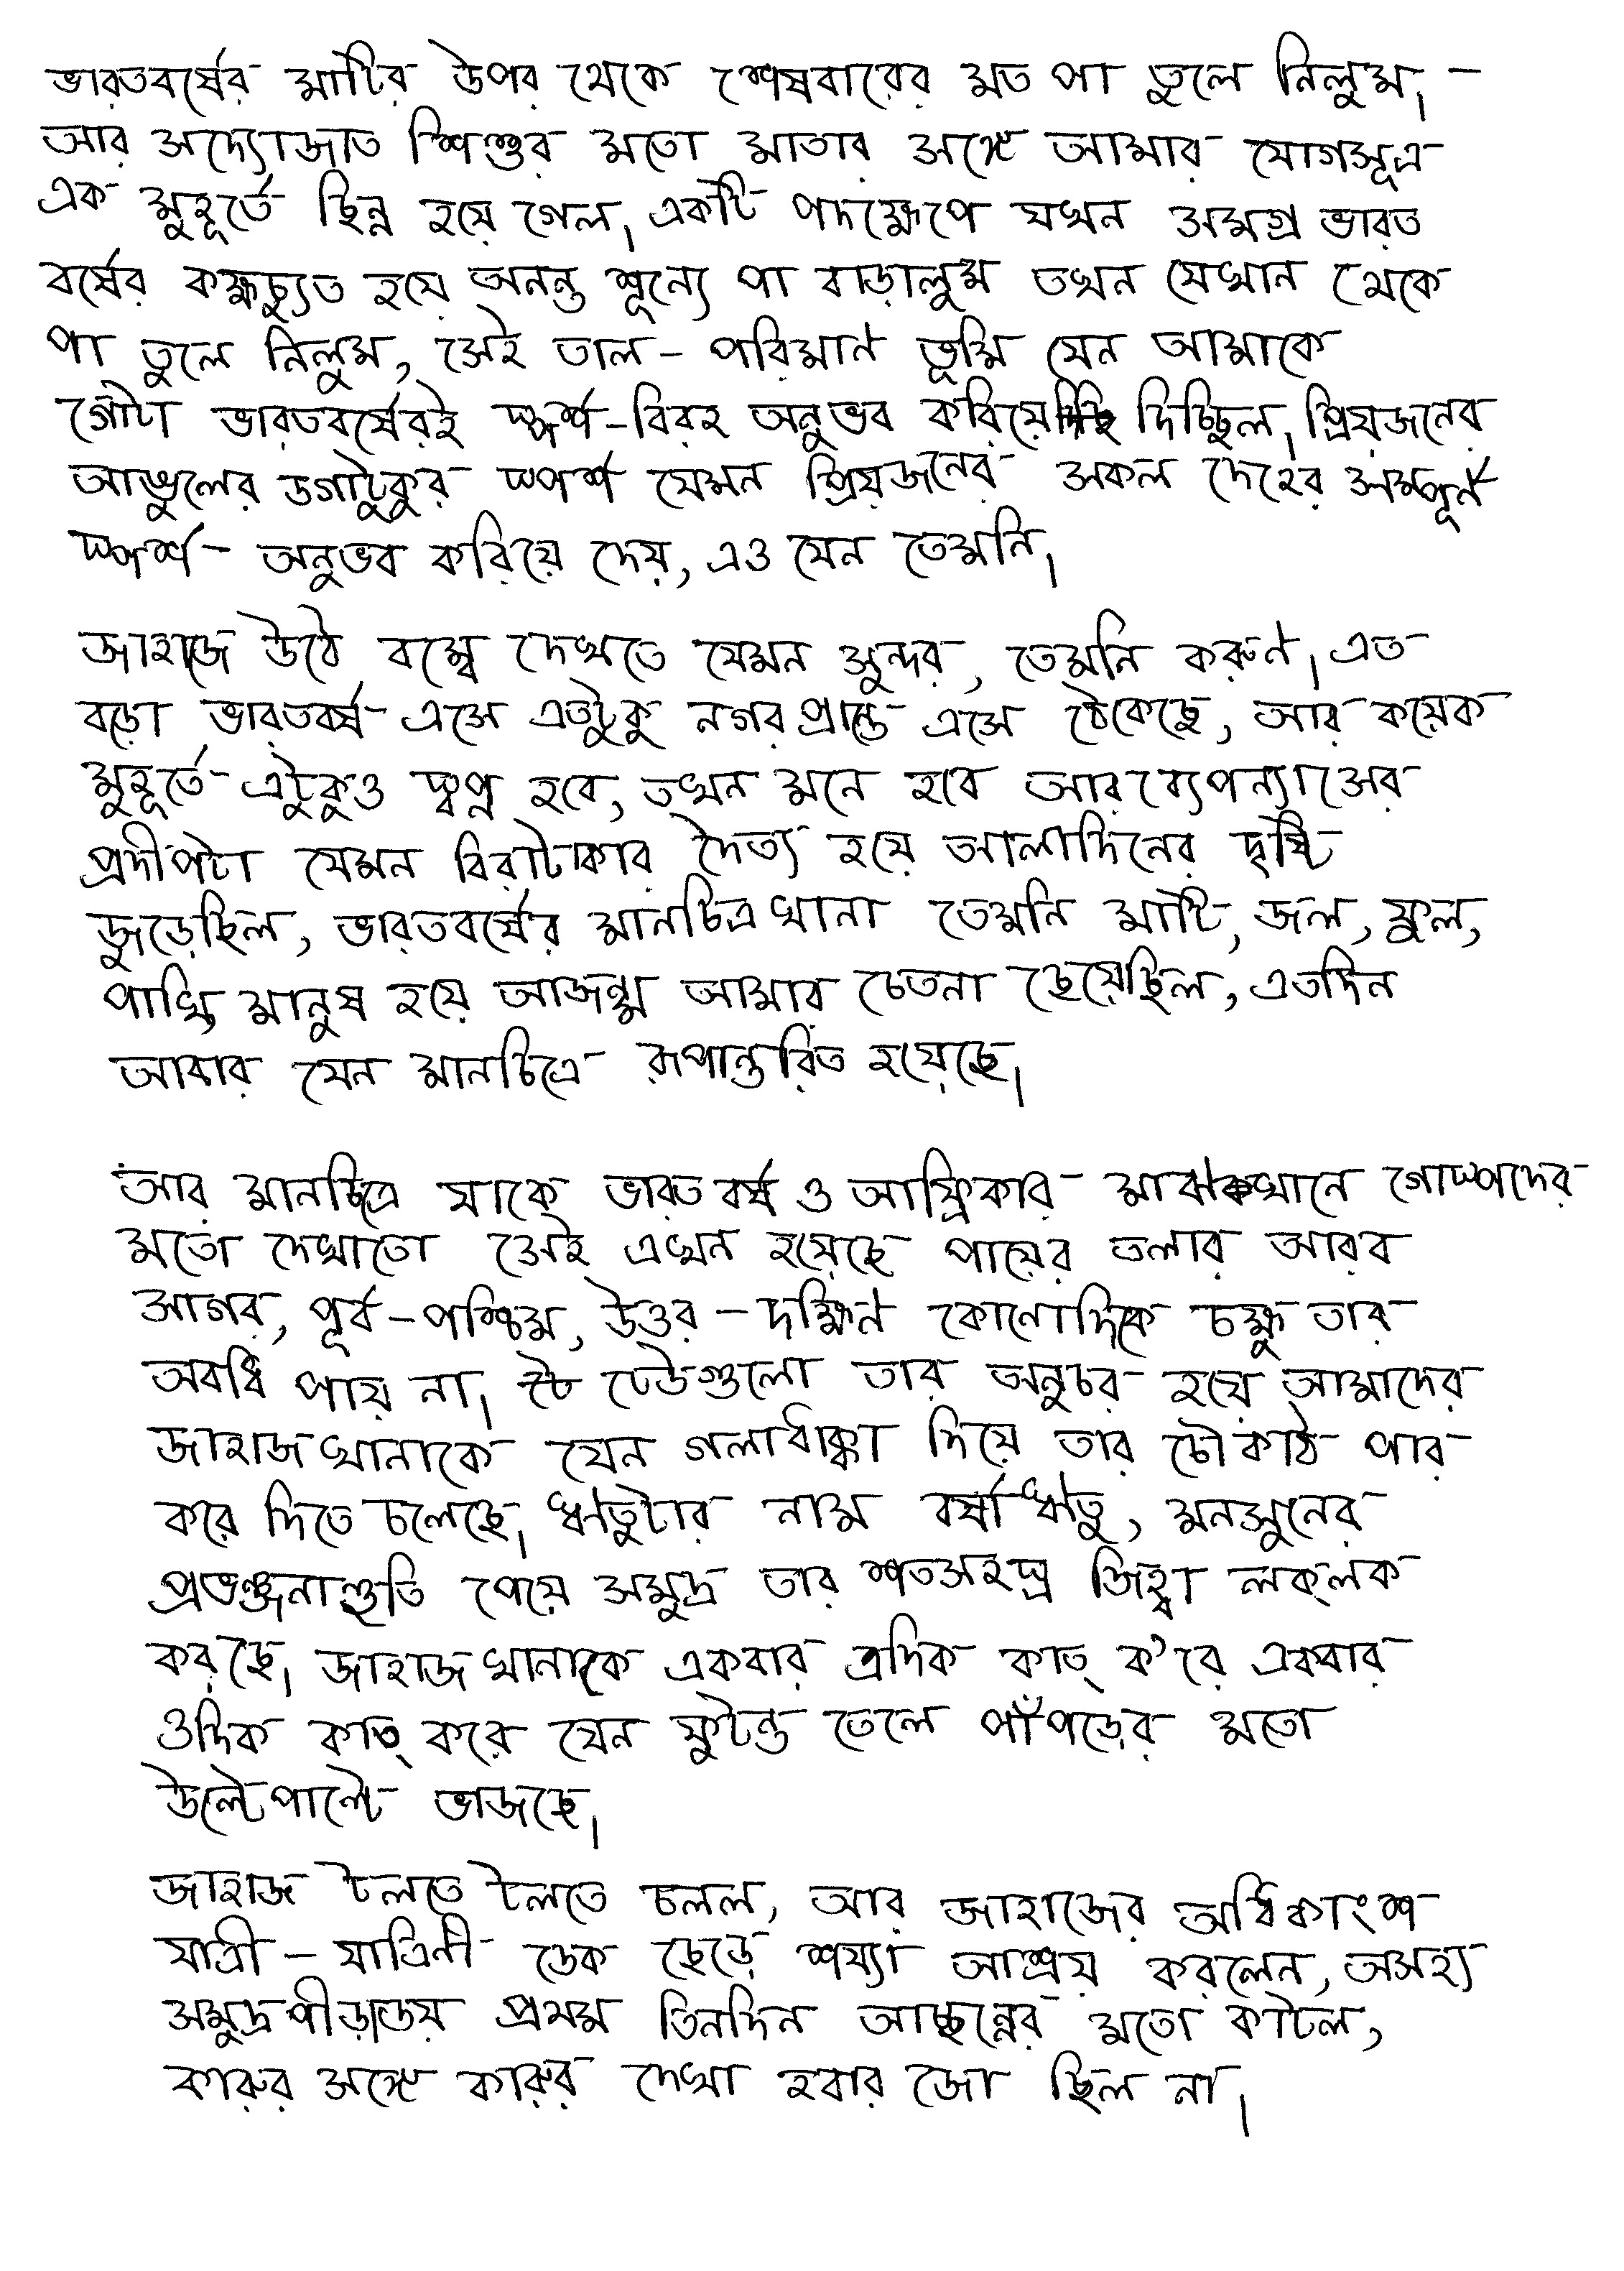 ভারতবর্ষের মাটির উপর থেকে শেষবারের মত পা তুলে নিলুম। -
আর সদ্যোজাত শিশুর মতো মাতার সঙ্গে আমার যোগসূত্র
এক মুহূর্তে ছিন্ন হয়ে গেল। একটি পদক্ষেপে যখন সমগ্র ভারত
বর্ষের কক্ষচ্যুত হয়ে অনন্ত শূন্যে পা বাড়ালুম তখন যেখান থেকে
পা তুলে নিলুম, সেই তাল - পরিমাণ ভূমি যেন আমাকে
গোটা ভারতবর্ষেরই স্পর্শ-বিরহ অনুভব করিয়ে দিচ্ছিল। প্রিয়জনের
আঙুলের ডগাটুকুর স্পর্শ যেমন প্রিয়জনের সকল দেহের সম্পূর্ণ
স্পর্শ - অনুভব করিয়ে দেয়, এও যেন তেমনি।
জাহাজে উঠে বম্বে দেখতে যেমন সুন্দর, তেমনি করুণ। এত
বড়ো ভারতবর্ষ এসে এতটুকু নগরপ্রান্তে এসে ঠেকেছে, আর কয়েক
মুহূর্তে এটুকুও স্বপ্ন হবে, তখন মনে হবে আরব্যোপন্যাসের
প্রদীপটা যেমন বিরাটাকার দৈত্য হয়ে আলাদিনের দৃষ্টি
জুড়েছিল, ভারতবর্ষের মানচিত্রখানা তেমনি মাটি, জল, ফুল,
পাখি, মানুষ হয়ে আজন্ম আমার চেতনা ছেয়েছিল, এতদিন
আবার যেন মানচিত্রে রূপান্তরিত হয়েছে।
আর মানচিত্রে যাকে ভারতবর্ষ ও আফ্রিকার মাঝখানে গোষ্পদের
মতো দেখাতো সেই এখন হয়েছে পায়ের তলার আরব
সাগর, পূর্ব-পশ্চিম, উত্তর - দক্ষিণ কোনোদিকে চক্ষু তার
অবধি পায় না। ঢেউগুলো তার অনুচর হয়ে আমাদের
জাহাজখানাকে যেন গলাধাক্কা দিয়ে তার চৌকাঠ পার
করে দিতে চলেছে। ঋতুটার নাম বর্ষাঋতু, মনসুনের
প্রভঞ্জনাহুতি পেয়ে সমুদ্র তার শতসহস্র জিহ্বা লক্‌লক
করছে। জাহাজখানাকে একবার এদিক কাত্ ক'রে একবার
ওদিক কাত্ করে যেন ফুটন্ত তেলে পাঁপড়ের মতো
উল্টেপাল্টে ভাজছে।
জাহাজ টলতে টলতে চলল, আর জাহাজের অধিকাংশ
যাত্রী - যাত্রিনী ডেক ছেড়ে শয্যা আশ্রয় করলেন, অসহ্য
সমুদ্রপীড়ায় প্রথম তিনদিন আচ্ছন্নের মতো কাটল,
কারুর সঙ্গে কারুর দেখা হবার জো ছিল না।